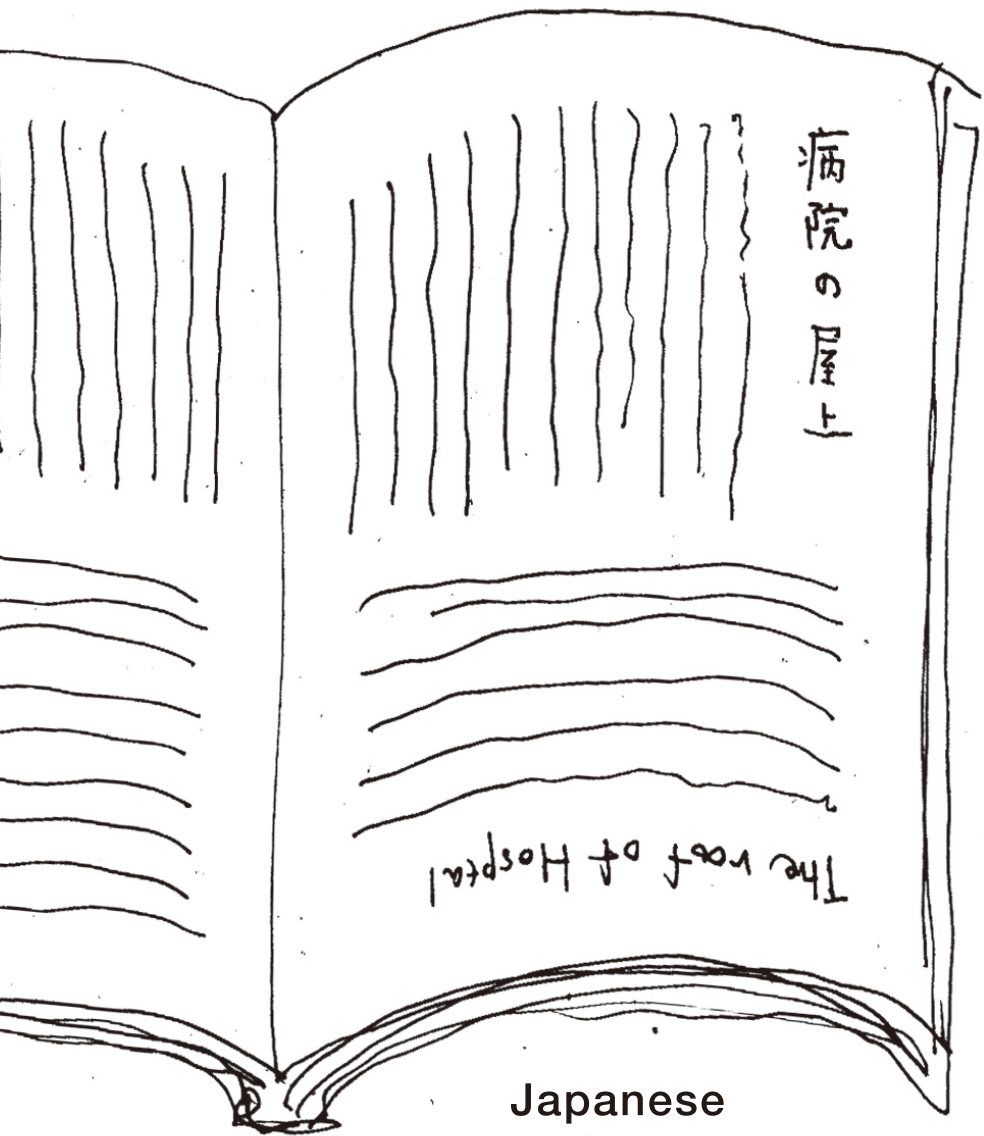 病院の屋上
The roof of Hosptal
Japanese